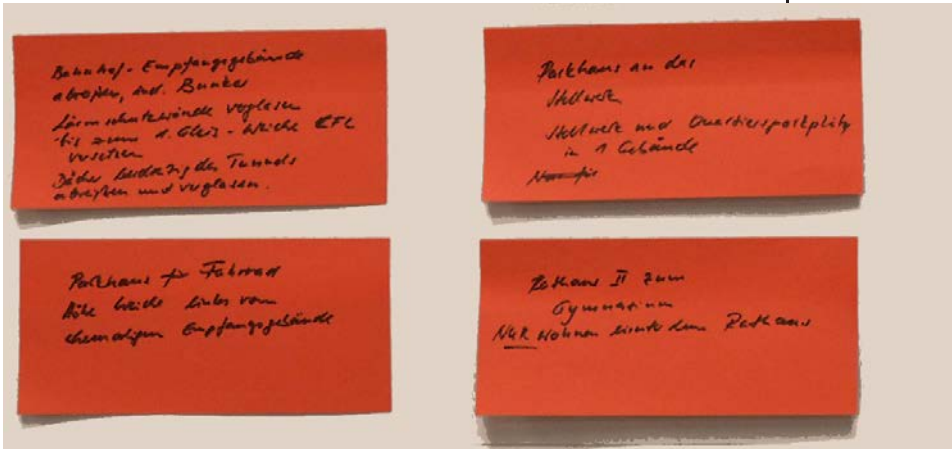 Bahnhof - Empfangsgebäude
abreißen, incl. Bunker
Lärmschutzwände verglasen
bis zum 1. Gleis - Weiche CFL
versetzen
Dächer beidseitig des Tunnels
abreißen und verglasen.
Parkhaus an das
Stellwerk
Stellwerk und Quartiersparkplätze
in 1 Gebäude
Parkhaus für Fahrrad
Höhe Weiche links vom
ehemaligen Empfangsgebäude
Rathaus II zum
Gymnasium
NUR wohnen hinter dem Rathaus